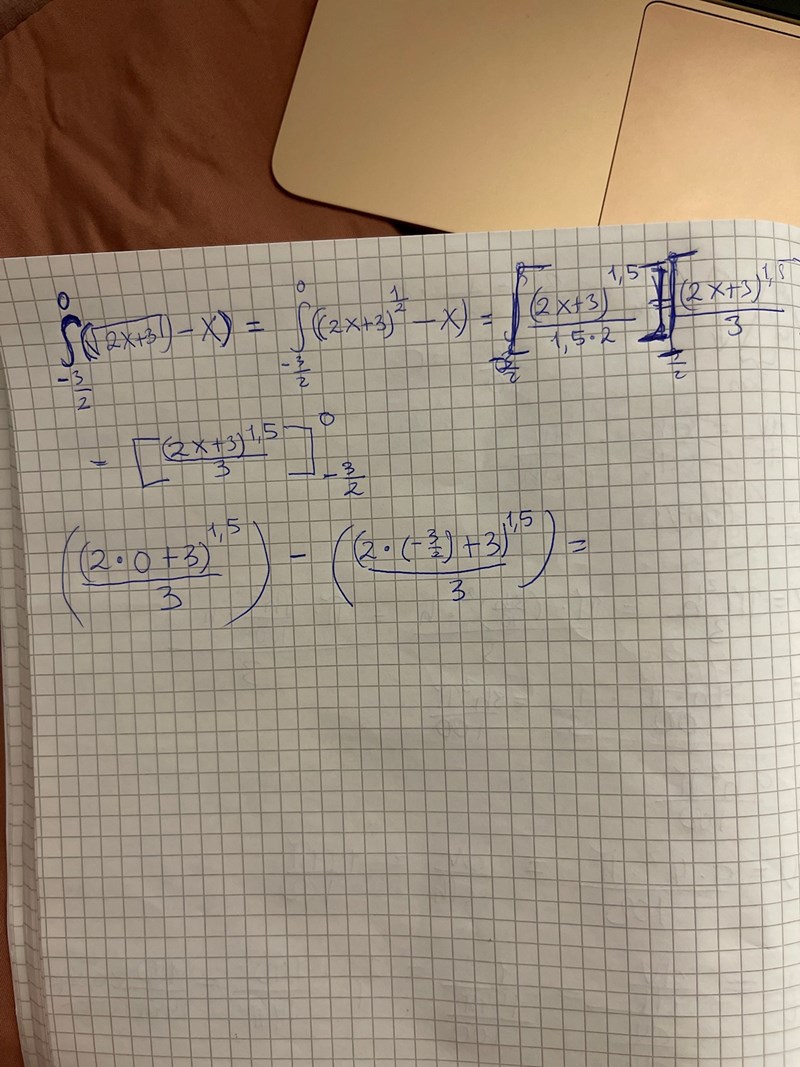 ∫₋₃/₂⁰ (√(2x+3) − x) = ∫₋₃/₂⁰ ((2x+3)^(1/2) − x) = [(2x+3)^1,5 / 1,5·2] = [(2x+3)^1,5 / 3
= [(2x+3)^1,5 / 3]₋₃/₂⁰
((2·0+3)^1,5 / 3) − ((2·(−3/2)+3)^1,5 / 3) =